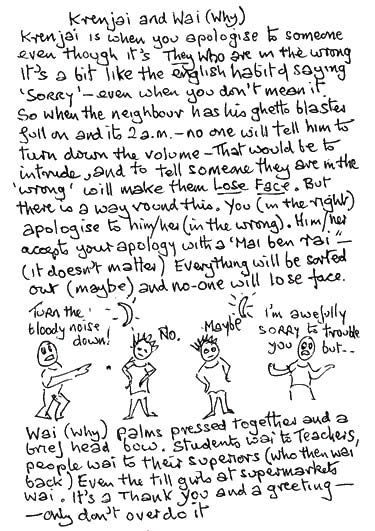 Krenjai and Wai (Why)
Krenjai is when you apologise to someone
even though it's They who are in the wrong
It's a bit like the english habit of saying
'SORRY' – even when you don't mean it.
So when the neighbour has his ghetto blaster
full on and its 2 a.m. – no one will tell him to
turn down the volume – That would be to
intrude, and to tell someone they are in the
'wrong' will make them Lose Face. But
there is a way round this. You (in the right)
apologise to him/her (in the wrong). Him/her
accept your apology with a 'Mai ben rai' –
(it doesn't matter) Everything will be sorted
out (maybe) and no-one will lose face.
Turn the
bloody noise
down!
No.
Maybe
I'm awefully
SORRY to trouble
you but--
Wai (Why) palms pressed together and a
brief head bow. Students wai to Teachers,
people wai to their superiors (who then wai
back) Even the till girls at supermarkets
wai. It's a Thank you and a greeting –
– only don't over do it